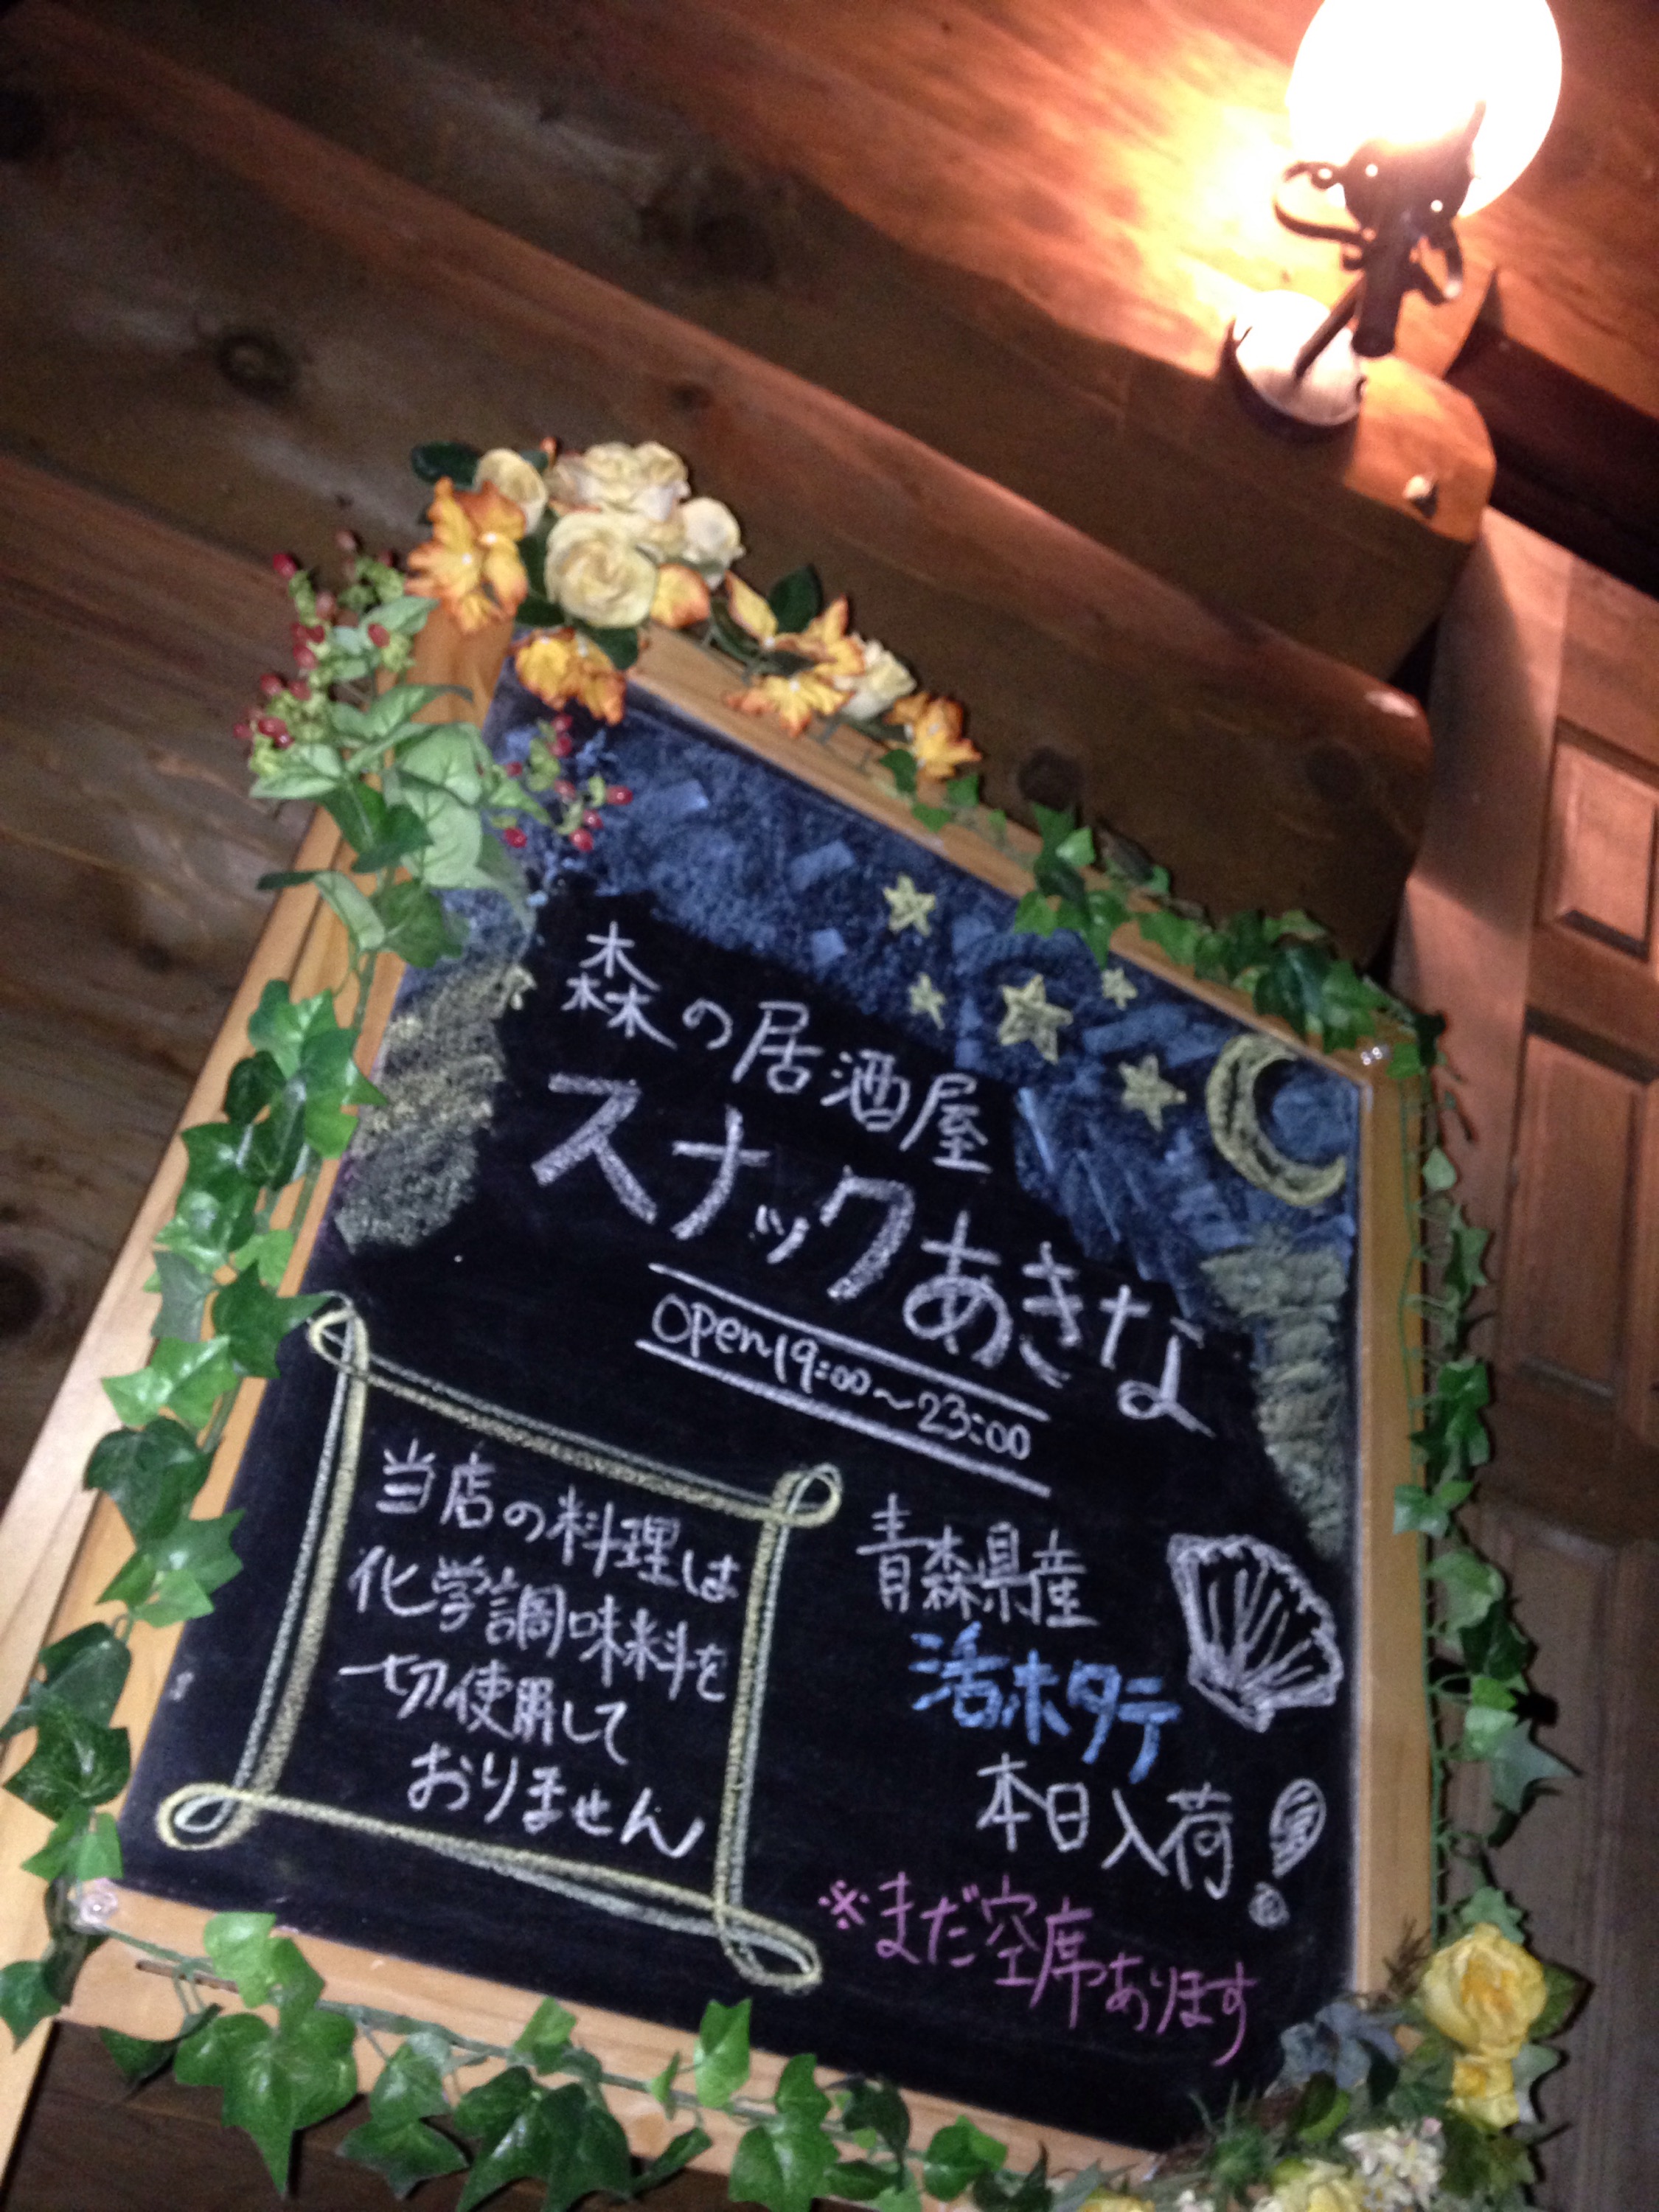 森の居酒屋
スナックあきな
OPEN 19:00〜23:00
当店の料理は
化学調味料を
一切使用して
おりません
青森県産
活ホタテ
本日入荷!
※まだ空席あります